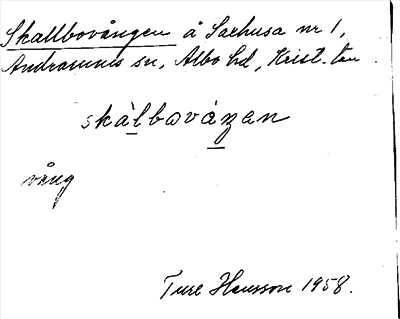 Skallbovången å Sarhusa nr 1,
Andrarums sn, Albo hd, Krist. län.
skàlbováŋan
vång
Ture Hansson 1958.